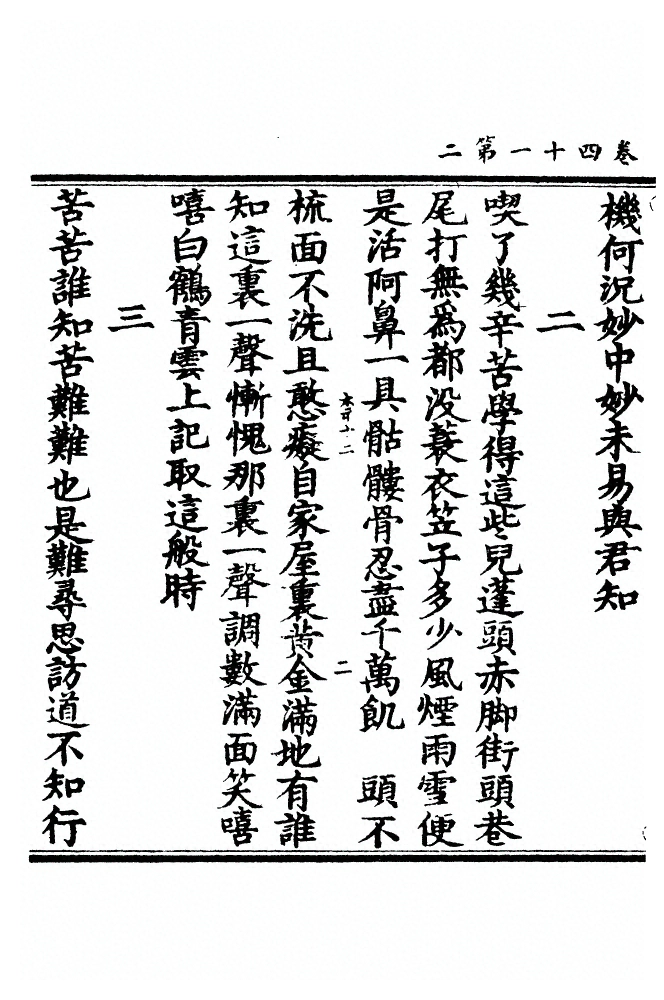 卷四十一第二
機何況妙中妙未易與君知
二
喫了幾辛苦學得這些兒蓬頭赤脚街頭巷
尾打無爲都没蓑衣笠子多少風煙雨雪便
是活阿鼻一具骷髏骨忍盡千萬飢　頭不
二
梳面不洗且憨癡自家屋裏黄金滿地有誰
知這裏一聲慚愧那裏一聲調數滿面笑嘻
嘻白鶴青雲上記取這般時
三
苦苦誰知苦難難也是難尋思訪道不知行